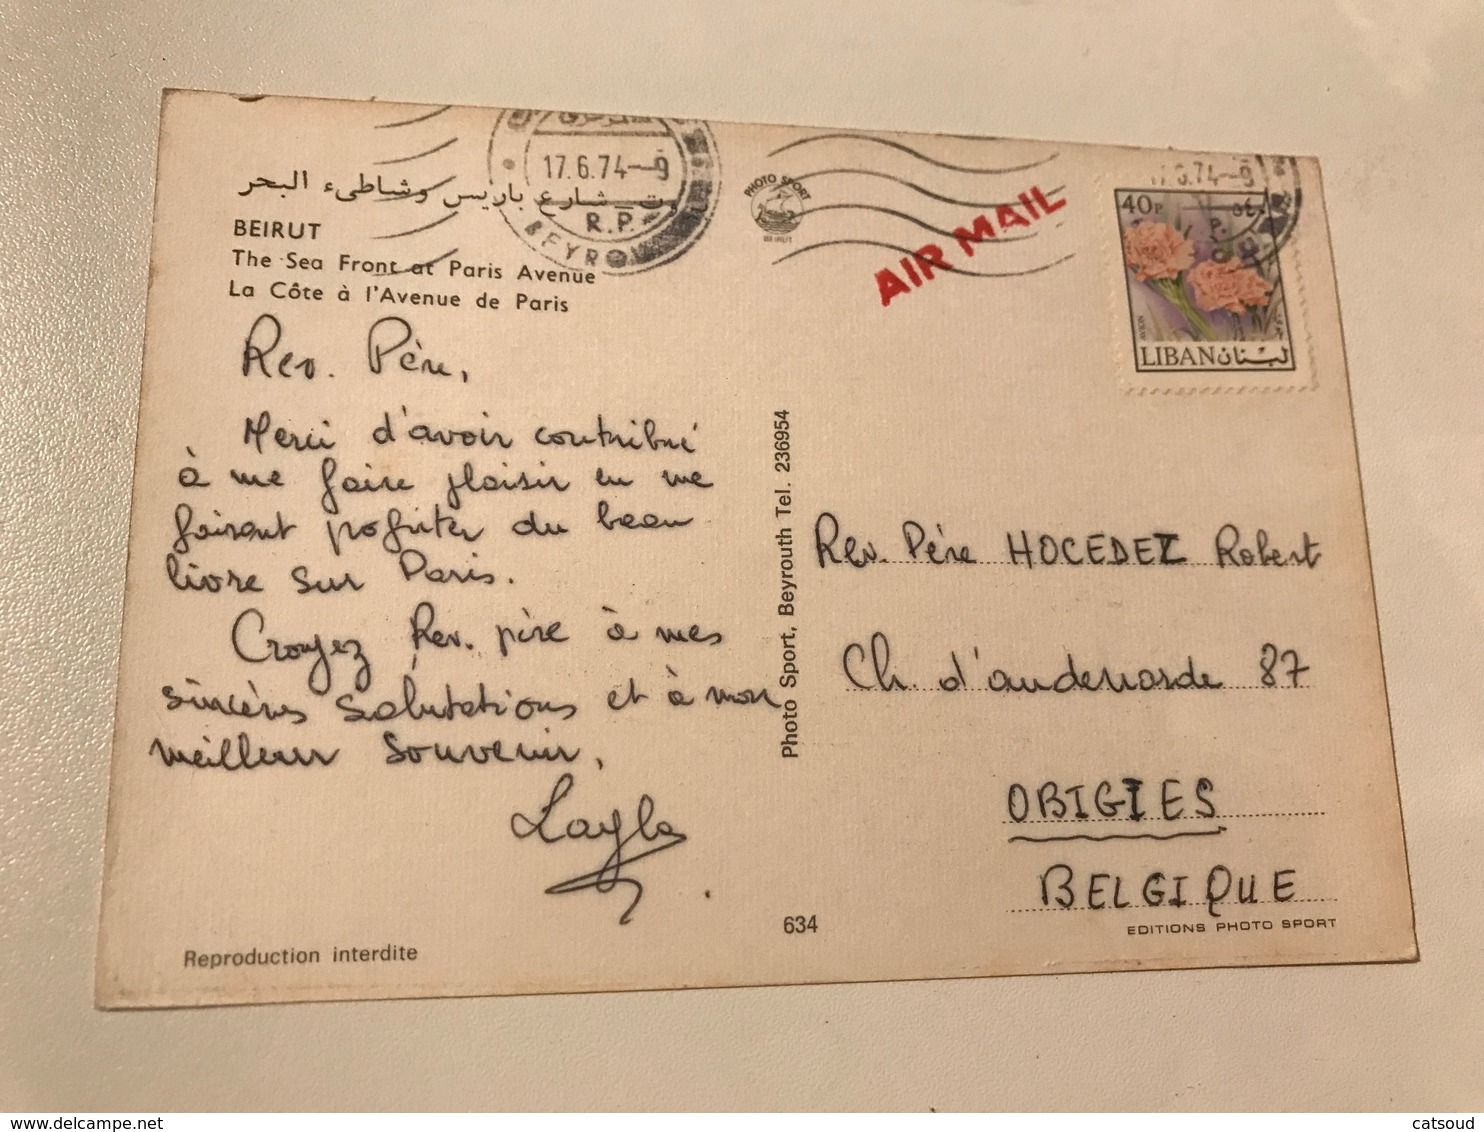 17.6.74-9
R.P.
شارع باريس وشاطىء البحر
BEIRUT
The Sea Front at Paris Avenue
La Côte à l'Avenue de Paris
Rev. Père,
Merci d'avoir contribué
à me faire plaisir en me
faisant profiter du beau
livre sur Paris.
Croyez Rev. père à mes
sincères salutations et à mon
meilleur souvenir,
Layla
Reproduction interdite
PHOTO SPORT
BEIRUT
AIR MAIL
40P
AVION
LIBAN لبنان
Photo Sport, Beyrouth Tel. 236954
634
Rev. Père HOCEDEZ Robert
Ch. d'audenarde 87
OBIGIES
BELGIQUE
EDITIONS PHOTO SPORT
delcampe.net
catsoud